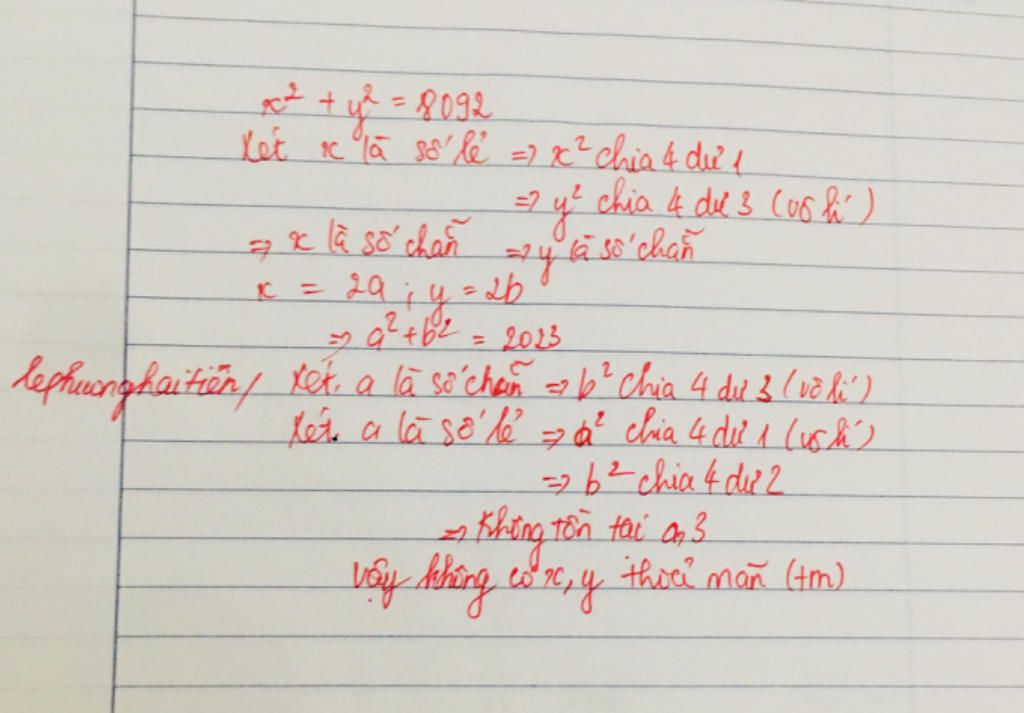 x² + y² = 8092
Xét x là số lẻ => x² chia 4 dư 1
=> y² chia 4 dư 3 (vô lí)
=> x là số chẵn => y là số chẵn
x = 2a ; y = 2b
=> a² + b² = 2023
lephuonghaitien/ Xét a là số chẵn => b² chia 4 dư 3 (vô lí)
Xét a là số lẻ => a² chia 4 dư 1 (vô lí)
=> b² chia 4 dư 2
=> không tồn tại a, 3
vậy không có x, y thoả mãn (tm)